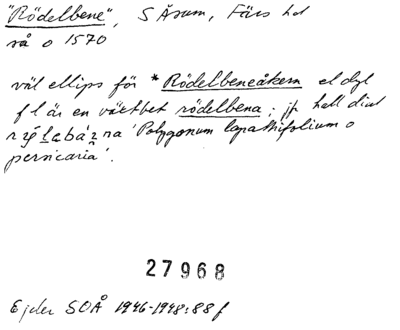 "Rödelbene", S Åsum, Färs hd
så o 1570
väl ellips för *Rödelbeneåkern el dyl
f l är en växtbet rödelbena; jfr hall dial
'Polygonum lapathifolium o
persicaria'.
27968
Ejder SOÅ 1946-1948:88 f